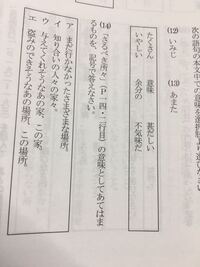 次の語句の本文中での意味を選択肢より選び
(12) いみじ (13) あまた
たくさん 意味 甚だしい
いやしい 余分の 不気味だ
(14)「さるべき所々」(P一四・二行目)の意味としてあてはま
るものを、記号で答えなさい。
ア まだ行かなかったさまざまな場所。
イ 知り合いの人々の家々。
ウ 与えてくれそうなあの家、この家。
エ 盗みのできそうなあの場所、この場所。